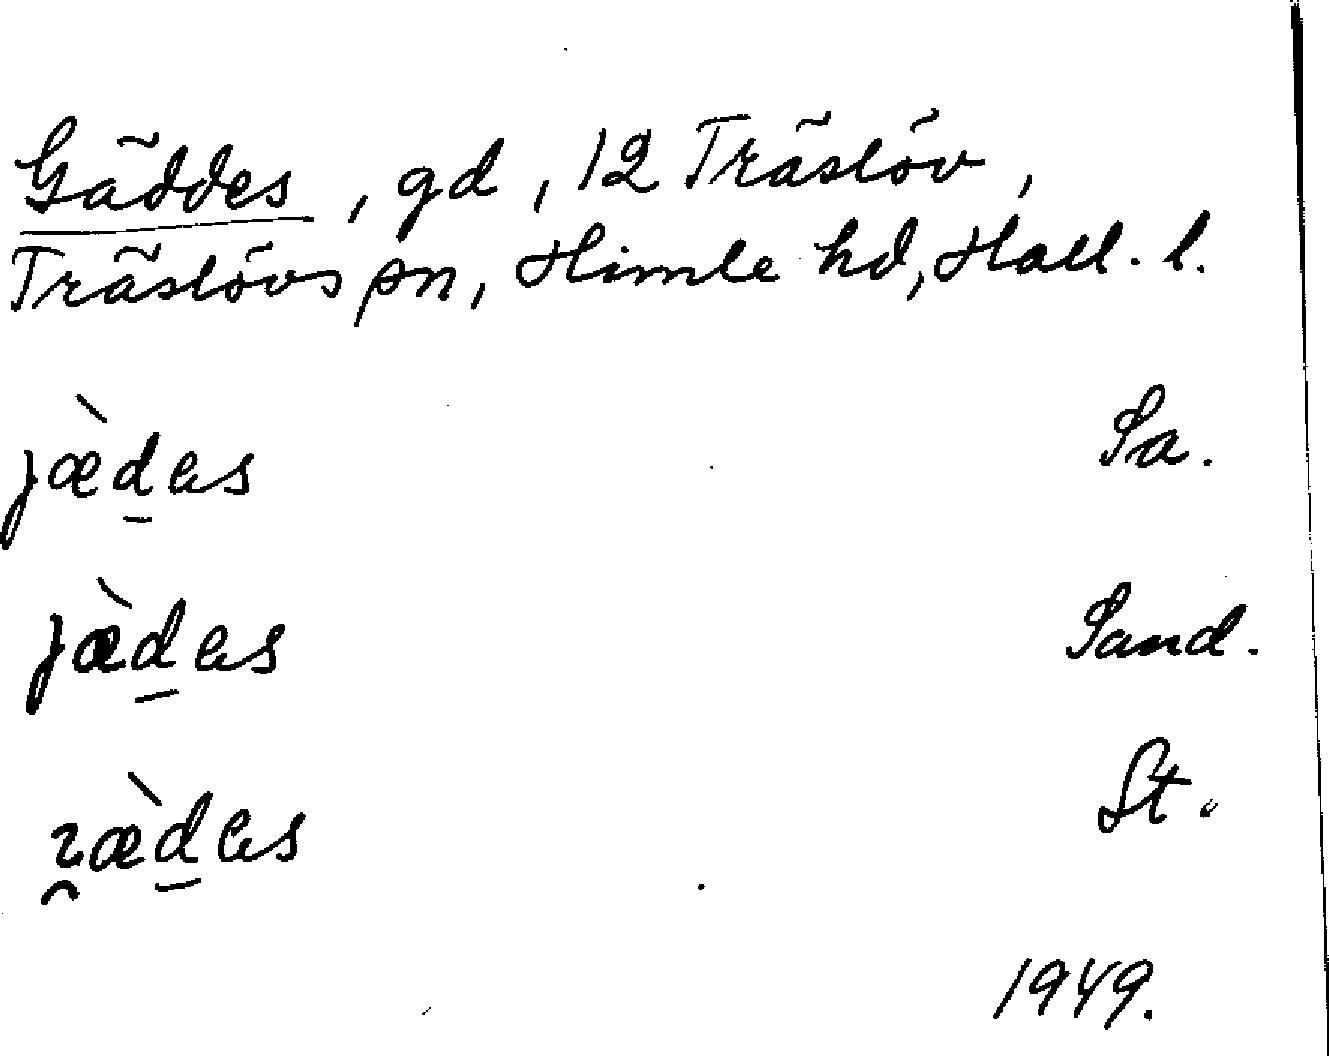 Gäddes, gd, 12 Träslöv,
Träslövs sn, Himle hd, Hall. l.
jæ̀d̲es Sa.
jæ̀d̲es Sand.
æ̀d̲es St.
1949.